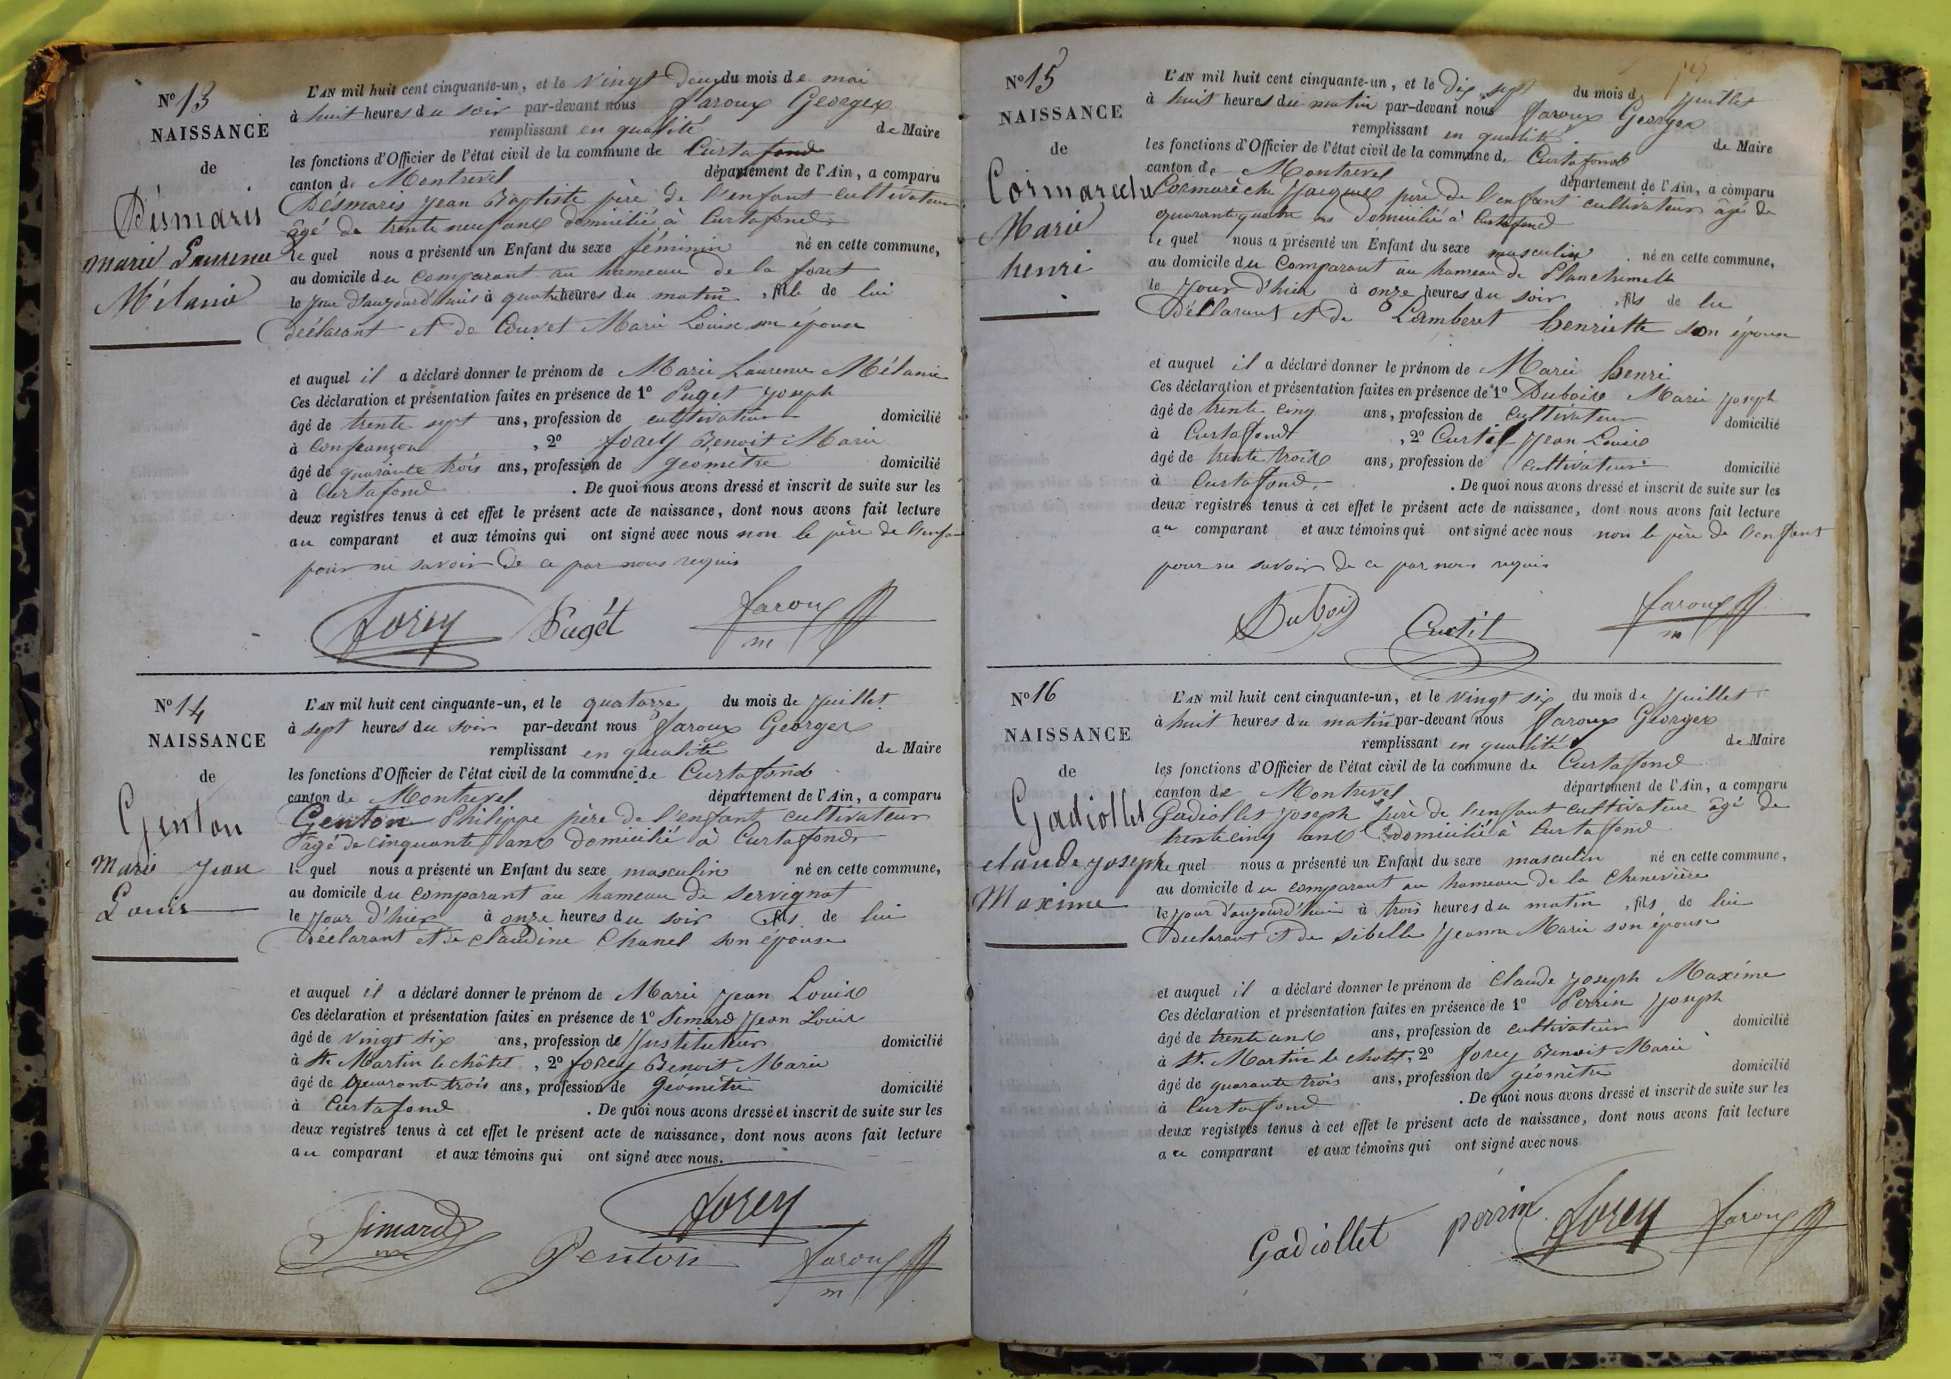 N° 13
NAISSANCE
de
Désmaris
marie Laurence
Mélanie
L'AN mil huit cent cinquante-un, et le vingt deux du mois de mai
à huit heures du soir par-devant nous Faroux Georges
remplissant en qualité de Maire
les fonctions d'Officier de l'état civil de la commune de Curtafond
canton de Montrevel département de l'Ain, a comparu
Désmares Jean Baptiste père de l'enfant cultivateur
âgé de trente neuf ans domicilié à Curtafond
le quel nous a présenté un Enfant du sexe féminin né en cette commune,
au domicile du comparant au hameau de la foret
le jour d'aujourd'huis à quatre heures du matin, fille de lui
déclarant et de Couvet Marie Louise son épouse
et auquel il a déclaré donner le prénom de Marie Laurence Mélanie
Ces déclaration et présentation faites en présence de 1° Puget Joseph
âgé de trente sept ans, profession de cultivateur domicilié
à Confrançon, 2° forey Benoit Marie
âgé de quarante trois ans, profession de géomètre domicilié
à Curtafond. De quoi nous avons dressé et inscrit de suite sur les
deux registres tenus à cet effet le présent acte de naissance, dont nous avons fait lecture
au comparant et aux témoins qui ont signé avec nous non le père de l'enfant
pour ne savoir de ce par nous requis
forey Pugét faroux
m
N° 14
NAISSANCE
de
Genton
Marie Jean
Louis
L'AN mil huit cent cinquante-un, et le quatorze du mois de Juillet
à sept heures du soir par-devant nous Faroux Georges
remplissant en qualité de Maire
les fonctions d'Officier de l'état civil de la commune de Curtafond
canton de Montrevel département de l'Ain, a comparu
Genton Philippe père de l'enfant cultivateur
âgé de cinquante ans domicilié à Curtafond
le quel nous a présenté un Enfant du sexe masculin né en cette commune,
au domicile du comparant au hameau de servignat
le jour d'hier à onze heures du soir fils de lui
déclarant et de claudine Chanel son épouse
et auquel il a déclaré donner le prénom de Marie Jean Louis
Ces déclaration et présentation faites en présence de 1° Simard Jean Louis
âgé de vingt six ans, profession de Instituteur domicilié
à St Martin le châtel, 2° forey Benoit Marie
âgé de quarante trois ans, profession de géomètre domicilié
à Curtafond. De quoi nous avons dressé et inscrit de suite sur les
deux registres tenus à cet effet le présent acte de naissance, dont nous avons fait lecture
au comparant et aux témoins qui ont signé avec nous.
Simard forey
Penton faroux
m
N° 15
NAISSANCE
de
Cormareche
Marie
henri
L'AN mil huit cent cinquante-un, et le dix sept du mois de Juillet
à huit heures du matin par-devant nous Faroux Georges
remplissant en qualité de Maire
les fonctions d'Officier de l'état civil de la commune de Curtafond
canton de Montrevel département de l'Ain, a comparu
Cormarèche Jacques père de l'enfant cultivateur âgé de
quarante quatre ans domicilié à Curtafond
le quel nous a présenté un Enfant du sexe masculin né en cette commune,
au domicile du comparant au hameau de
le jour d'hier à onze heures du soir, fils de lu
Déclarant et de Lamberet henriette son épouse
et auquel il a déclaré donner le prénom de Marie henri
Ces déclaration et présentation faites en présence de 1° Dubois Marie Joseph
âgé de trente cinq ans, profession de cultivateur domicilié
à Curtafond, 2° Curtil Jean Louis
âgé de trente trois ans, profession de cultivateur domicilié
à Curtafond. De quoi nous avons dressé et inscrit de suite sur les
deux registres tenus à cet effet le présent acte de naissance, dont nous avons fait lecture
au comparant et aux témoins qui ont signé avec nous non le père de l'enfant
pour ne savoir de ce par nous requis
Dubois Curtil faroux
m
N° 16
NAISSANCE
de
Gadiollet
claude joseph
Maxime
L'AN mil huit cent cinquante-un, et le vingt six du mois de Juillet
à huit heures du matin par-devant nous Faroux Georges
remplissant en qualité de Maire
les fonctions d'Officier de l'état civil de la commune de Curtafond
canton de Montrevel département de l'Ain, a comparu
Gadiollet Joseph père de l'enfant cultivateur âgé de
trente cinq ans domicilié à Curtafond
le quel nous a présenté un Enfant du sexe masculin né en cette commune,
au domicile du comparant au hameau de la Chenevière
le jour d'aujourd'hui à trois heures du matin, fils de lui
declarant et de sibelle Jeanne Marie son épouse
et auquel il a déclaré donner le prénom de Claude Joseph Maxime
Ces déclaration et présentation faites en présence de 1° Perrin Joseph
âgé de trente ans, profession de cultivateur domicilié
à St Martin le chatel, 2° forey Benoit Marie
âgé de quarante trois ans, profession de géomètre domicilié
à Curtafond. De quoi nous avons dressé et inscrit de suite sur les
deux registres tenus à cet effet le présent acte de naissance, dont nous avons fait lecture
au comparant et aux témoins qui ont signé avec nous
Gadiollet perrin forey faroux